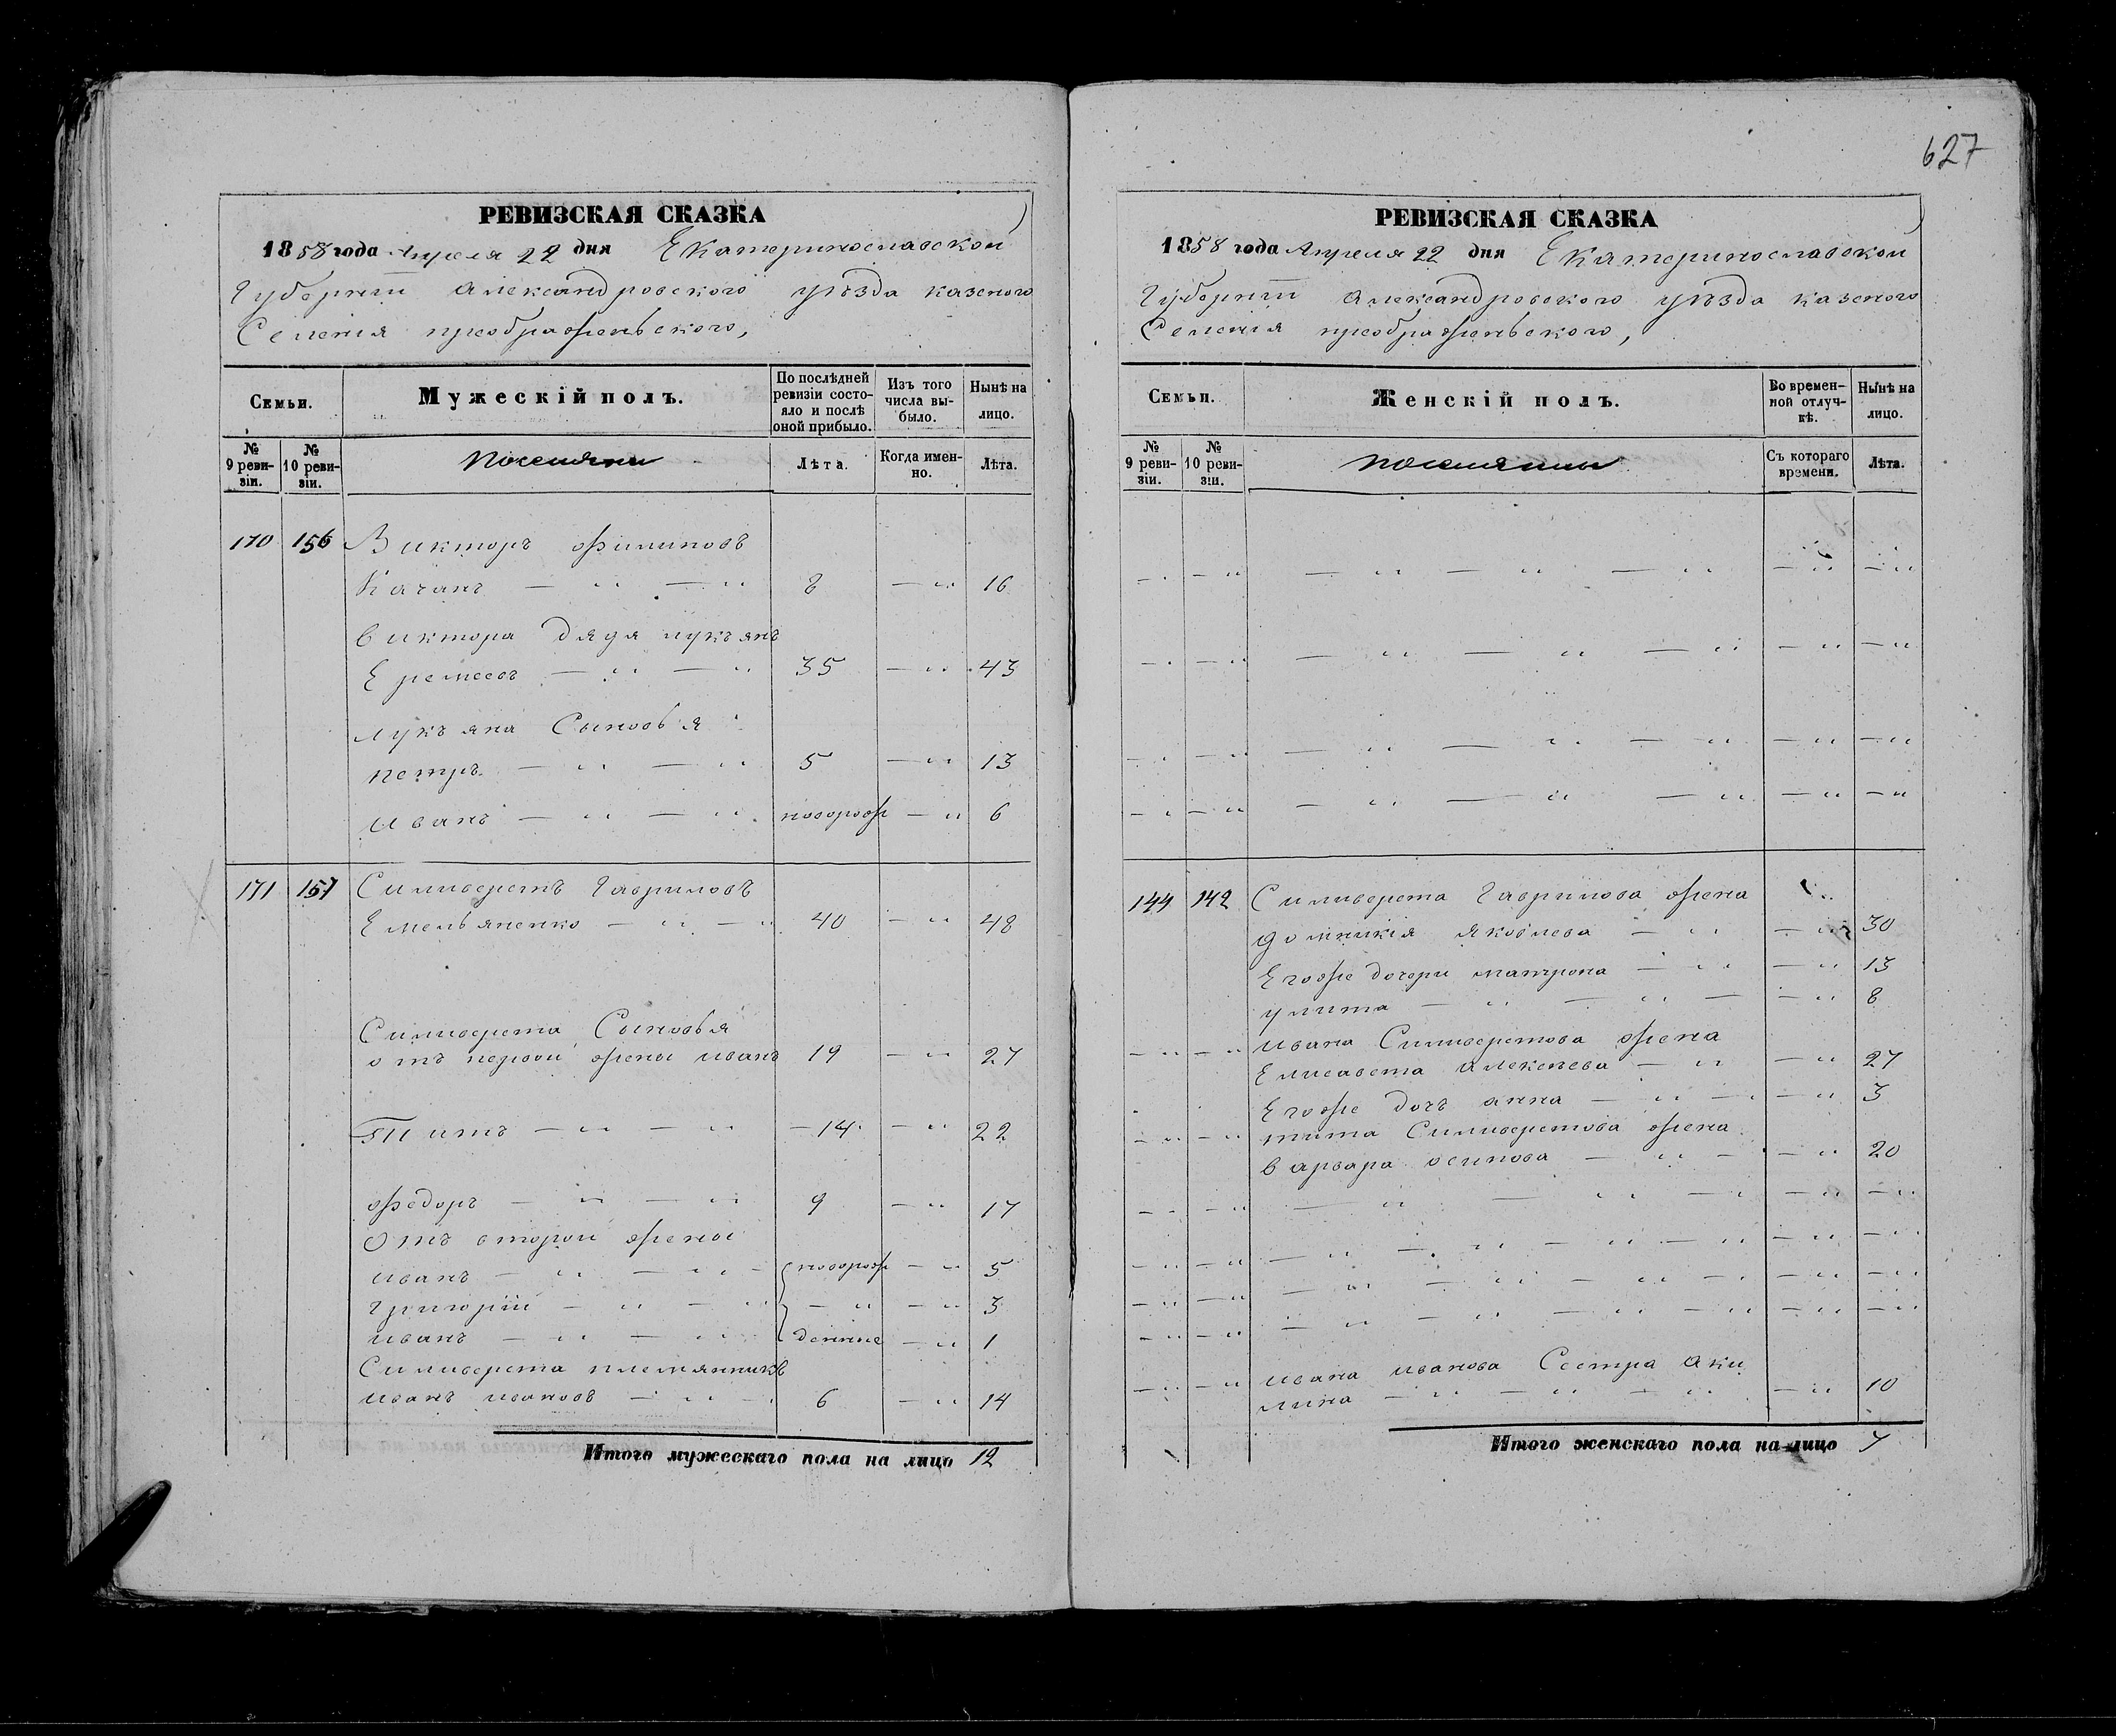 627
РЕВИЗСКАЯ СКАЗКА
1858 года Апреля 22 дня Екатеринославской
Губерніи Александровского уѣзда казеного
Селенія преображеньского,
Семьи.
Мужескій полъ.
По послѣдней ревизіи состояло и послѣ оной прибыло.
Изъ того числа выбыло.
Нынѣ на лицо.
№ 9 ревизіи.
№ 10 ревизіи.
поселяни
Лѣта.
Когда именно.
Лѣта.
170 156 Викторъ Филиповъ
Качанъ — „ — „ 8 — „ 16
Виктора дядя лукъянъ
Еремеевъ — „ — „ 35 — „ 43
лукъяна Сыновья
петръ — „ — „ 5 — „ 13
иванъ — „ — „ новорож — „ 6
171 157 Силиверстъ Гавриловъ
Емельяненко — „ — „ 40 — „ 48
Силиверста Сыновья
отъ первой жены иванъ 19 — „ 27
Титъ — „ — „ — 14 — „ 22
Федоръ — „ — „ 9 — „ 17
Отъ второй жены
иванъ — „ — „ новорож — „ 5
григорій — „ — „ — „ — „ 3
иванъ — „ — „ денные — „ 1
Силиверста племянникъ
иванъ ивановъ — „ — 6 — „ 14
Итого мужескаго пола на лицо 12
РЕВИЗСКАЯ СКАЗКА
1858 года Апреля 22 дня Екатеринославской
Губерніи Александровского уѣзда казеного
Селенія преображеньского,
Семьи.
Женскій полъ.
Во временной отлучкѣ.
Нынѣ на лицо.
№ 9 ревизіи.
№ 10 ревизіи.
Съ котораго времени.
Лѣта.
144 142 Силиверста Гаврилова жена
домникія Яковлева — „ — „ 30
Егоже дочери матрона — „ — „ 13
улита — „ — „ — — „ 8
ивана Силиверстова жена
Елисавета Алексѣева — „ — „ 27
Егоже дочь анна — „ — — „ 3
тита Силиверстова жена
варвара осипова — „ — — „ 20
ивана иванова Сестра Аки
лина — „ — „ — „ — „ 10
Итого женскаго пола на лицо 7